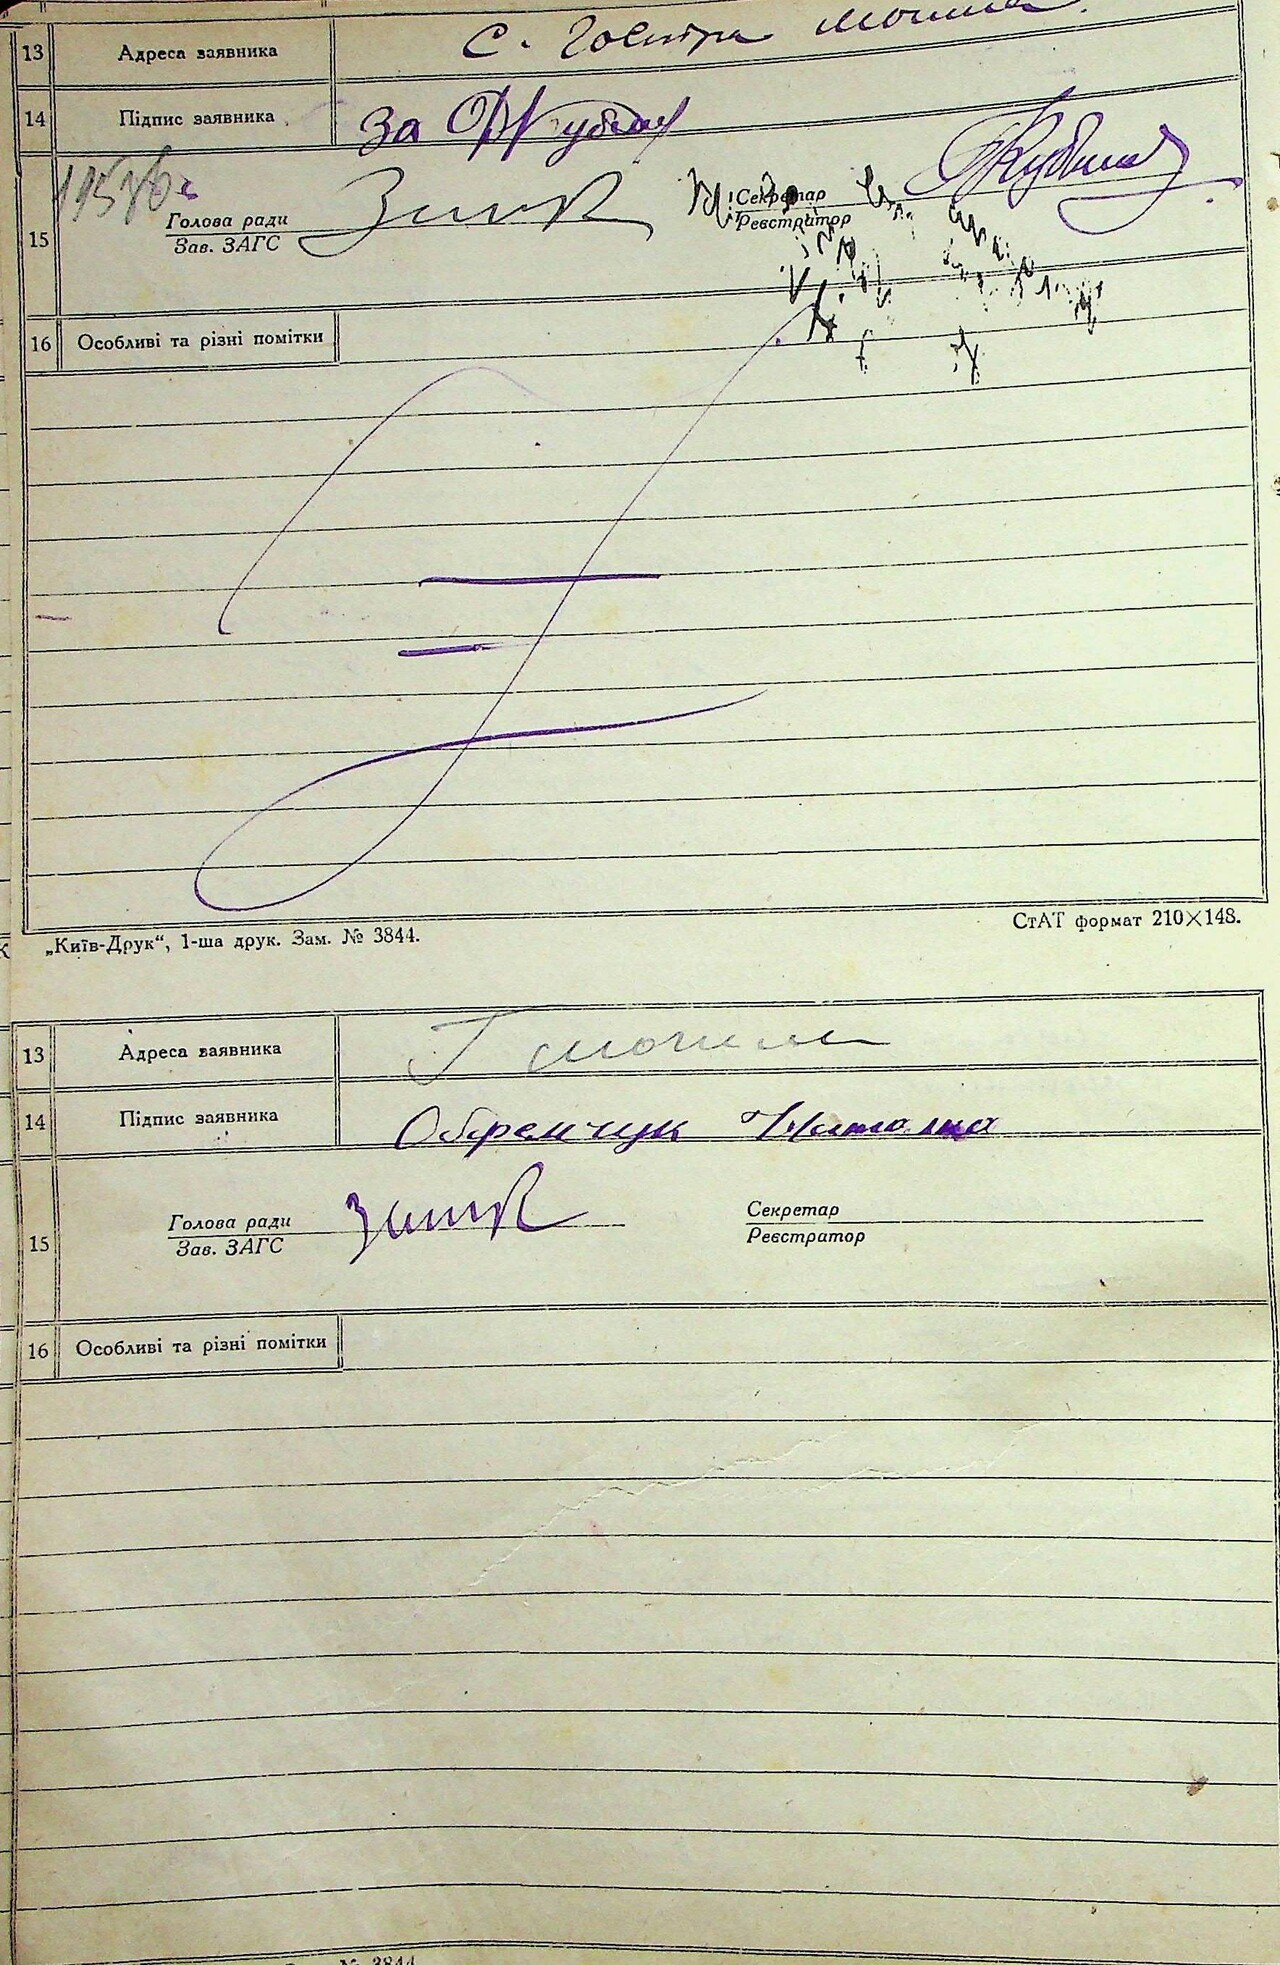 13 Адреса заявника С. Гостра Могила.
14 Підпис заявника За
Голова ради Секретар
15 Зав. ЗАГС Реєстратор
16 Особливі та різні помітки
„Київ-Друк“, 1-ша друк. Зам. № 3844. СтАТ формат 210×148.
13 Адреса заявника Г Могила
14 Підпис заявника Обремчук Наталка
Голова ради Секретар
15 Зав. ЗАГС Реєстратор
16 Особливі та різні помітки
№ 3844